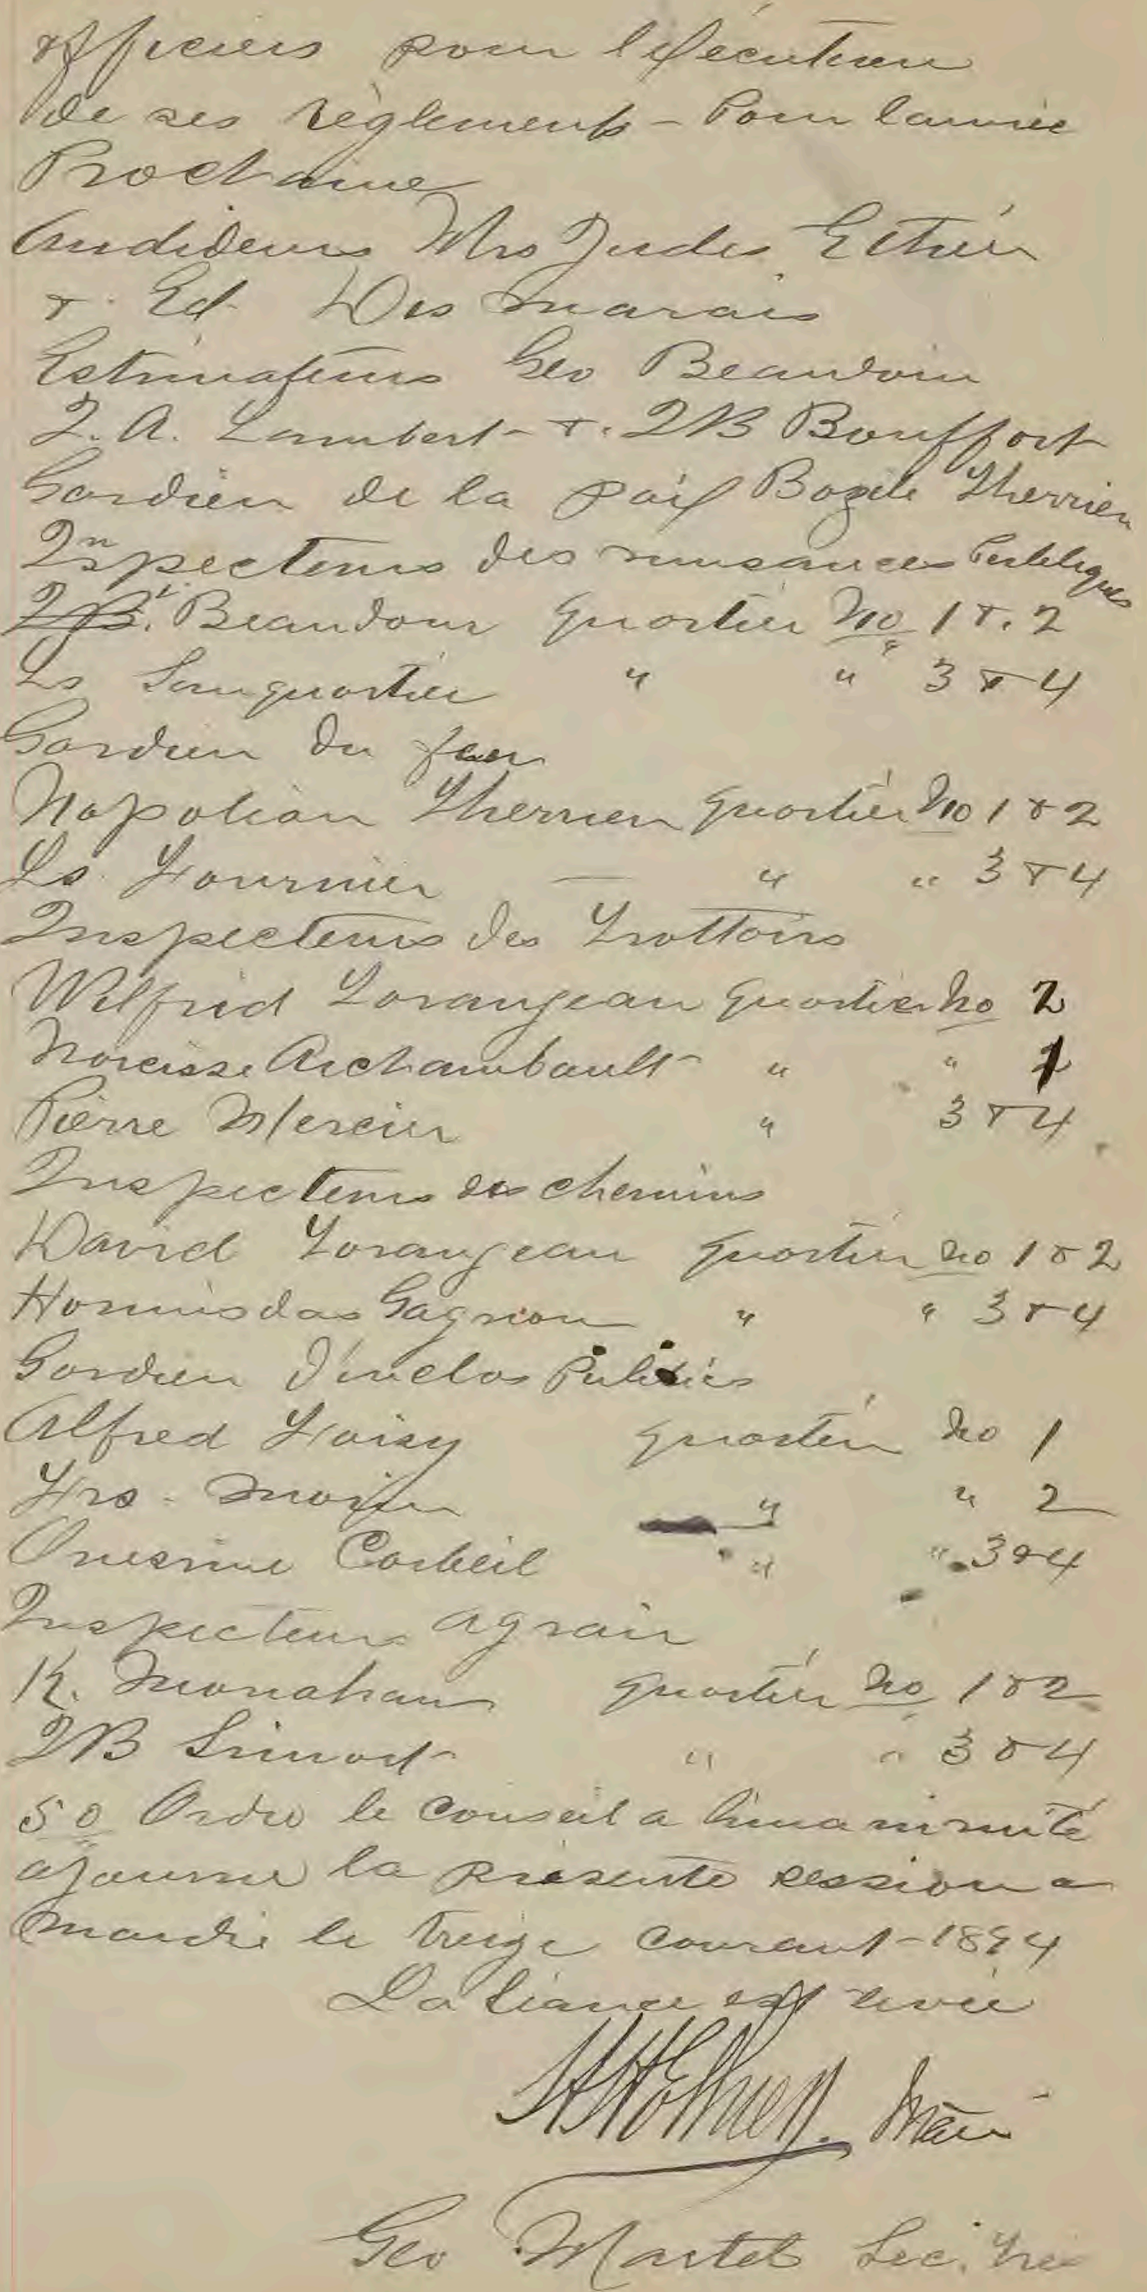 officiers pour l'exécution
de ses règlements - Pour l'année
Prochaine
Audideurs Mrs Judes Ethier
& Ed Des marais
Estimateurs Geo Beaudoin
J. A. Lambert &. JB Bouffort
Gardien de la paix Bozile Therrien
Inspecteurs des nuisances Publiques
Beaudoin quartier No 1 &. 2
Ls Lamquartier " " 3 & 4
Gardien du feu
Napoléon Therrien quartier No 1 & 2
Ls. Fournier — " " 3 & 4
Inspecteurs des Trottoirs
Wilfrid Lorangeau quartier no 2
Narcisse Archambault " " 1
Pierre Mercier " 3 & 4
Inspecteurs des chemins
David Lorangeau quartier no 1 & 2
Hormisdas Gagnon " " 3 & 4
Gardien d'enclos Publics
Alfred Loisy quartier no 1
Frs. Morin " " 2
Onesime Corbeil " " 3 & 4
Inspecteur agrair
K. Monahan quartier no 1 & 2
JB Simart " " 3 & 4
50 Ordre le conseil a l'unanimité
ajourne la présente session a
mardi le treize courant - 1894
La Séance est levée
Ethier Maire
Geo Martel Sec. Tré